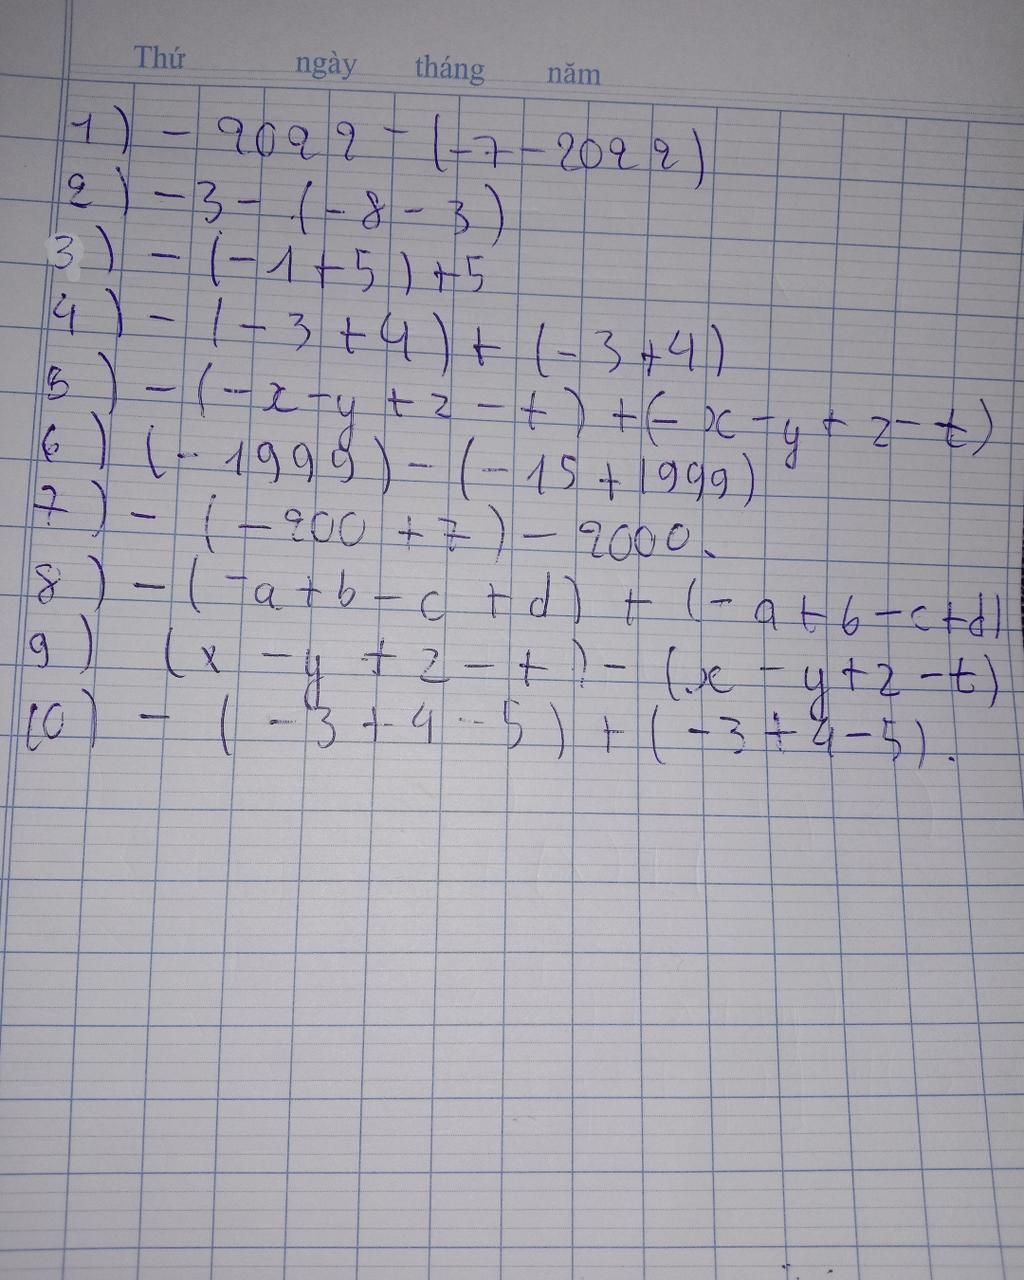 Thứ ngày tháng năm
1) - 2022 - (-7-2022)
2) -3- (-8-3)
3) - (-1+5)+5
4) - (-3+4)+(-3+4)
5) -(-x-y+z-t)+(-x-y+z-t)
6) (-1999)-(-15+1999)
7) - (-200+7)-2000.
8) -(-a+b-c+d)+(-a+b-c+d)
9) (x-y+z-t)-(x-y+z-t)
10) - (-3+4-5)+(-3+4-5).